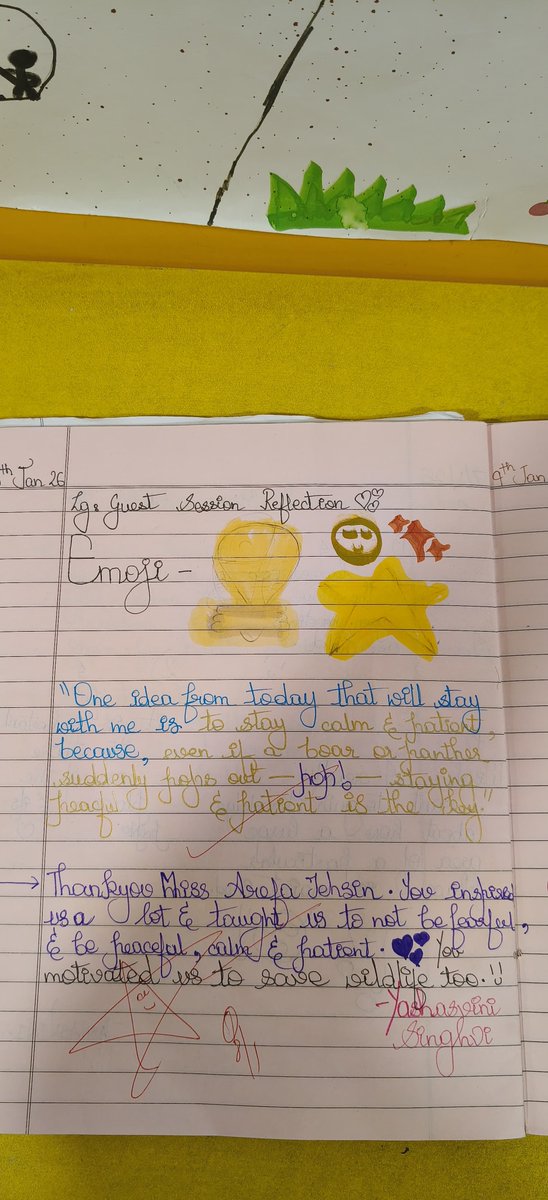 th Jan 26
9th Jan
Lg: Guest Session Reflection
Emoji -
"One idea from today that will stay
with me is to stay calm & patient,
because, even if a boar or panther
suddenly pops out — pop! — staying
peaceful & patient is the key."
→ Thankyou Miss Arefa Tehsin. You inspired
us a lot & taught us to not be fearful,
& be peaceful, calm & patient. You
motivated us to save wildlife too.!!
-Yashasvini
Singhvi